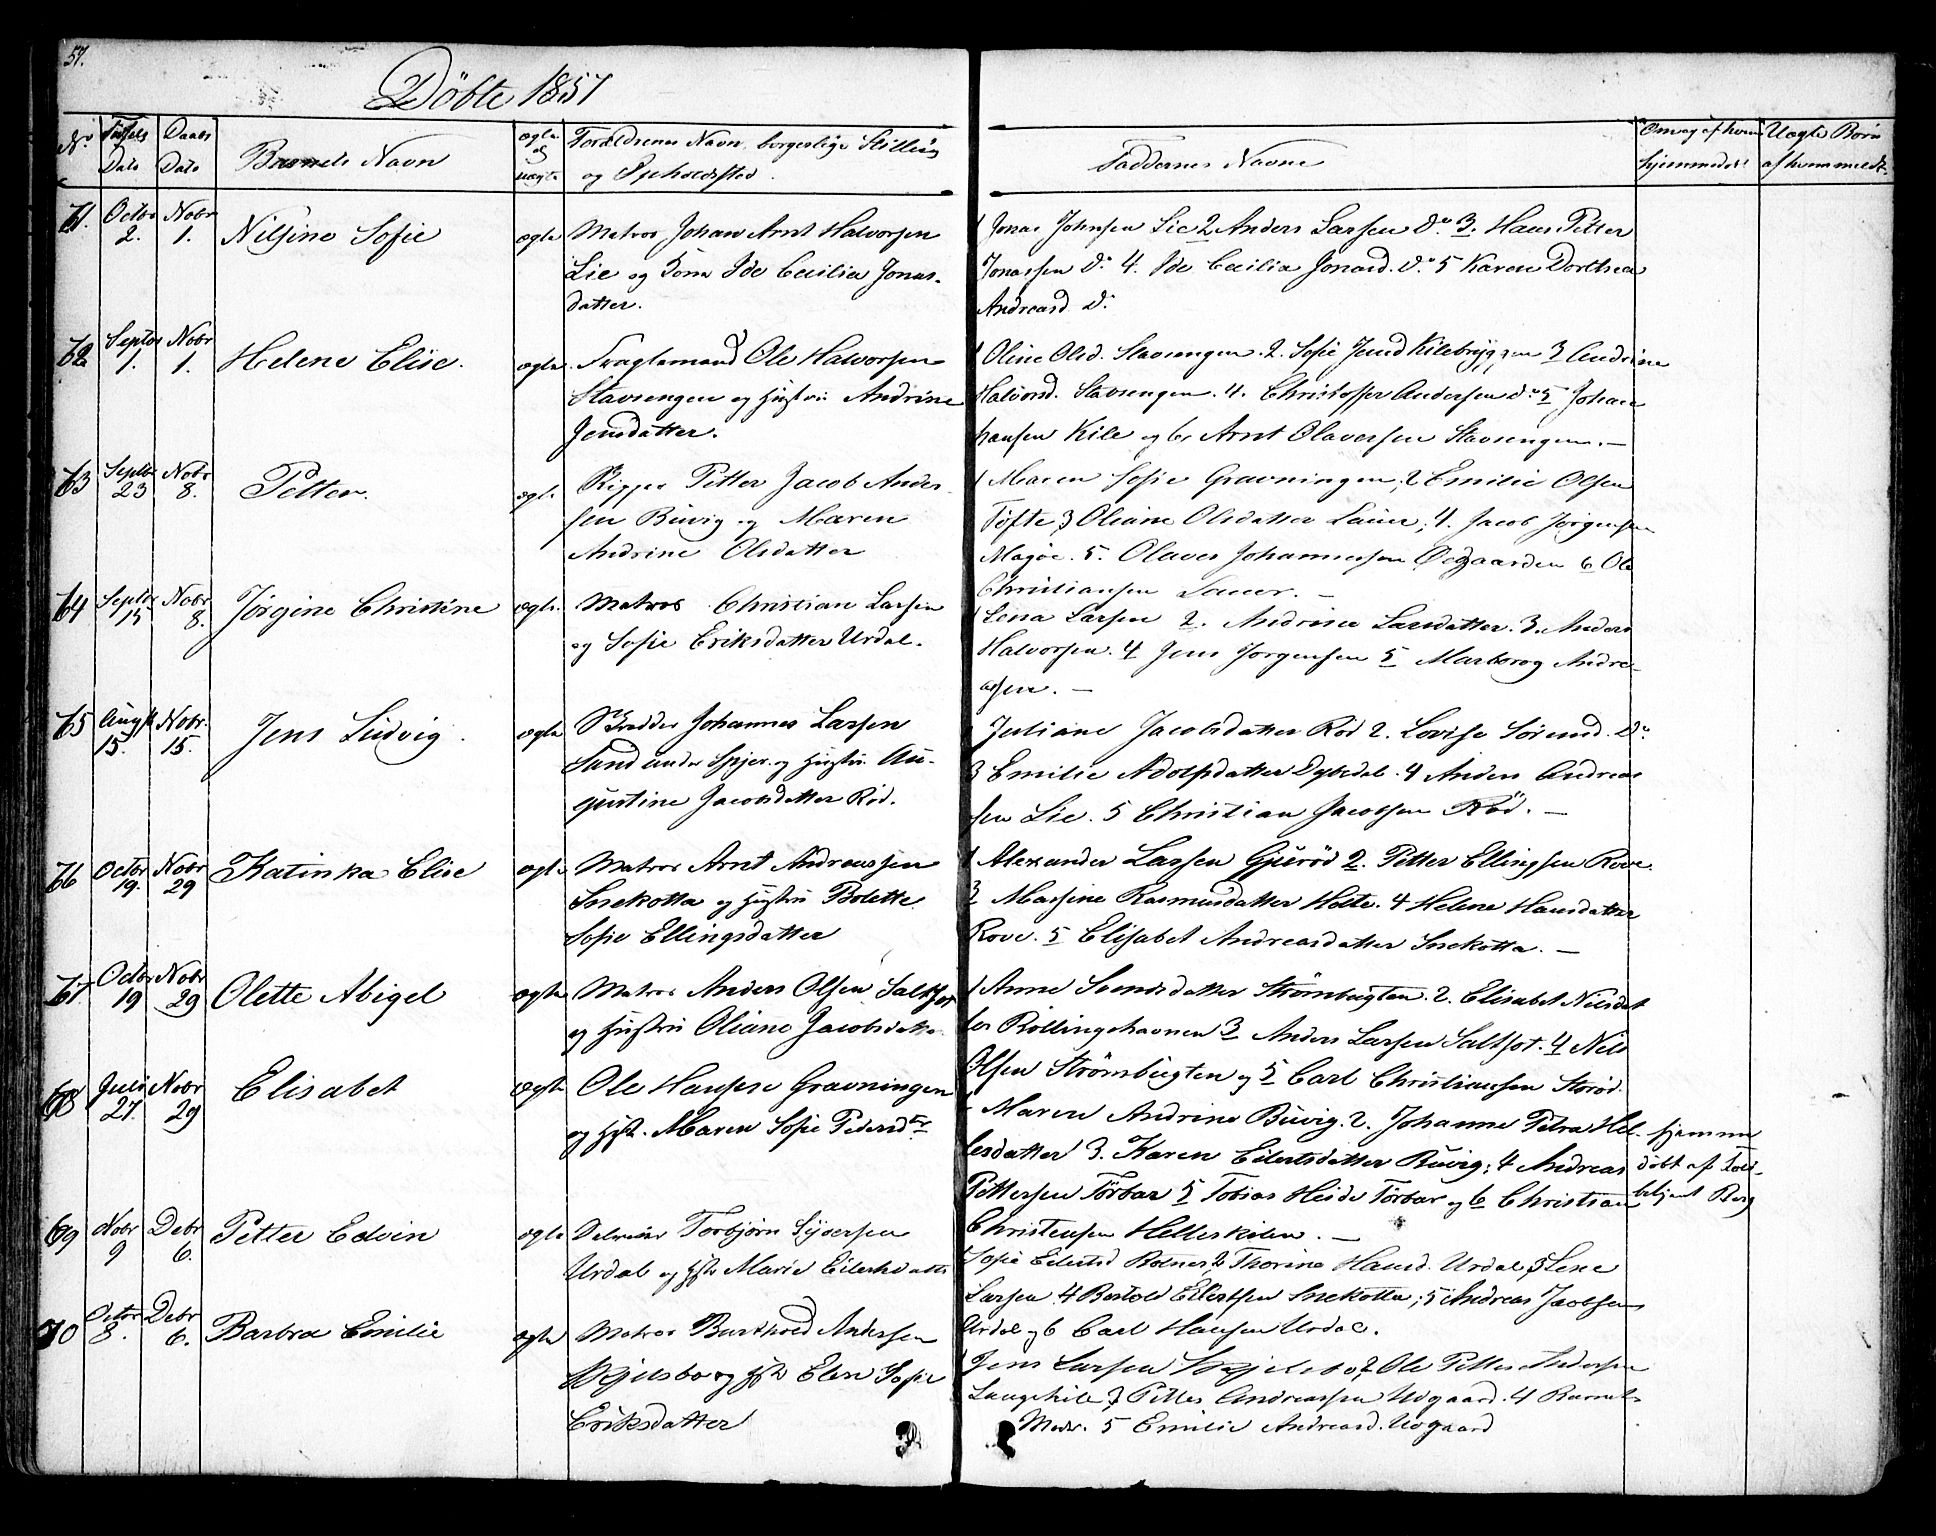 57.
Döbte 1857
No
Födsels
Dato
Daabs
Dato
Barnets Navn
ægte
og
uægte
Forældrenes Navn, borgerlige Stilling
og Opholdsted.
Faddernes Navne
hjemmedöbt
Uægte Børn
61.
Octbr
2.
Nobr
1.
Nilsine Sofie
ægte
Matros Johan Arnt Halvorsen
Lie og Kone Ide Cecilia Jonas-
datter.
1 Jonas Johnsen Lie 2 Anders Larsen do 3. Hans Petter
Jonassen do 4. Ide Cecilia Jonasd. do 5 Karen Dorthea
Andreasd do
62
Septbr
1.
Nobr
1.
Helene Elise.
ægte.
Fragtemand Ole Halvorsen
Stavsengen og Hustru Andrine
Jensdatter.
1 Oline Olsd. Stavsengen. 2. Sofie Jensd Kilebryggen 3 Andrine
Halvorsd. Stavsengen. 4. Christoffer Andersen do 5 Johan
Hansen Kile og 6, Arnt Olavessen Stavsengen. —
63
Septbr
23
Nobr
8.
Petter.
ægte.
Rigger Petter Jacob Ander-
sen Buvig og Maren
Andrine Olsdatter
1 Maren Sofie Gravningen, 2 Emilie Olsen
Tofte, 3 Oliane Olsdatter Lauer, 4. Jacob Jörgensen
Magöe. 5. Olaves Johannessen Ödegaarden 6 Ole
Christiansen Lauer. —
64
Septbr
15
Nobr
8.
Jörgine Christine
ægte.
Matros Christian Larsen
og Sofie Eriksdatter Urdal.
1 Lena Larsen 2. Andrine Larsdatter. 3. Anders
Halvorsen. 4 Jens Jorgensen 5 Marborog Andre-
asen. —
65
Augst
15.
Nobr.
15.
Jens Ludvig.
ægte
Skrædder Johannes Larsen
Sand under Spjær. og Hustru Au-
gustine Jacobsdatter Röd.
Juliane Jacobsdatter Röd 2. Lovise Sörensd. do
3 Emilie Adolfsdatter Dypedal. 4 Anders Andreas
sen Lie. 5 Christian Jacobsen Röd. —
66
Octbr
19.
Nobr
29
Katinka Elise
ægte
Matros Arnt Andreassen
Snekotta og Hustru Bolette
Sofie Ellingsdatter
1 Alexander Larsen Gjeröd 2. Petter Ellingsen Rove.
3 Massine Rasmusdatter Holte. 4 Helene Hansdatter
Rove. 5 Elisabet Andreasdatter Snekotta. —
67
Octbr
19
Nobr
29
Olette Abigel
ægte
Matros Anders Olsen Saltbot
og Hustru Oliane Jacobsdatter
1 Anne Svendsdatter Strömbugten. 2. Elisabet Nilsdat
ter Röllingshavnen 3 Anders Larsen Saltbot. 4 Nils
Olsen Strömbugten og 5 Carl Christiansen Storöd.
68
Juli
27.
Nobr
29
Elisabet
ægte
Ole Hansen Gravningen
og Hst. Maren Sofie Pedersdtr.
1 Maren Andrine Buvig. 2. Johanne Petra Hel-
lesdatter 3. Karen Eilertsdatter Buvig; 4 Andreas
Pettersen Törbar 5 Tobias Heide Törbar og 6 Christian
Christensen Helleskilen. —
hjemme
döbt af Told-
betjent Berg
69
Nobr
9
Debr
6.
Petter Edvin
ægte
Torbjörn Syversen
Urdal og Hst. Marie Eilertsdatter
1 Sofie Eilertsd Botner, 2 Thorine Hansd. Urdal, 3 Lene
Larsen 4 Bertold Eilertsen Snekotta; 5 Andreas Jacobsen
Urdal og 6 Carl Hansen Urdal.
70
Octbr
8.
Debr
6.
Barbra Emilie
ægte
Matros Andersen
og Hst Elen Sofie
Eriksdatter
1 Jens Larsen 2 Ole Petter Andersen
Langekile 3 Petter Andreassen Udgaard. 4 Barnets
Moder. 5 Emilie Andreasd. Udgaard